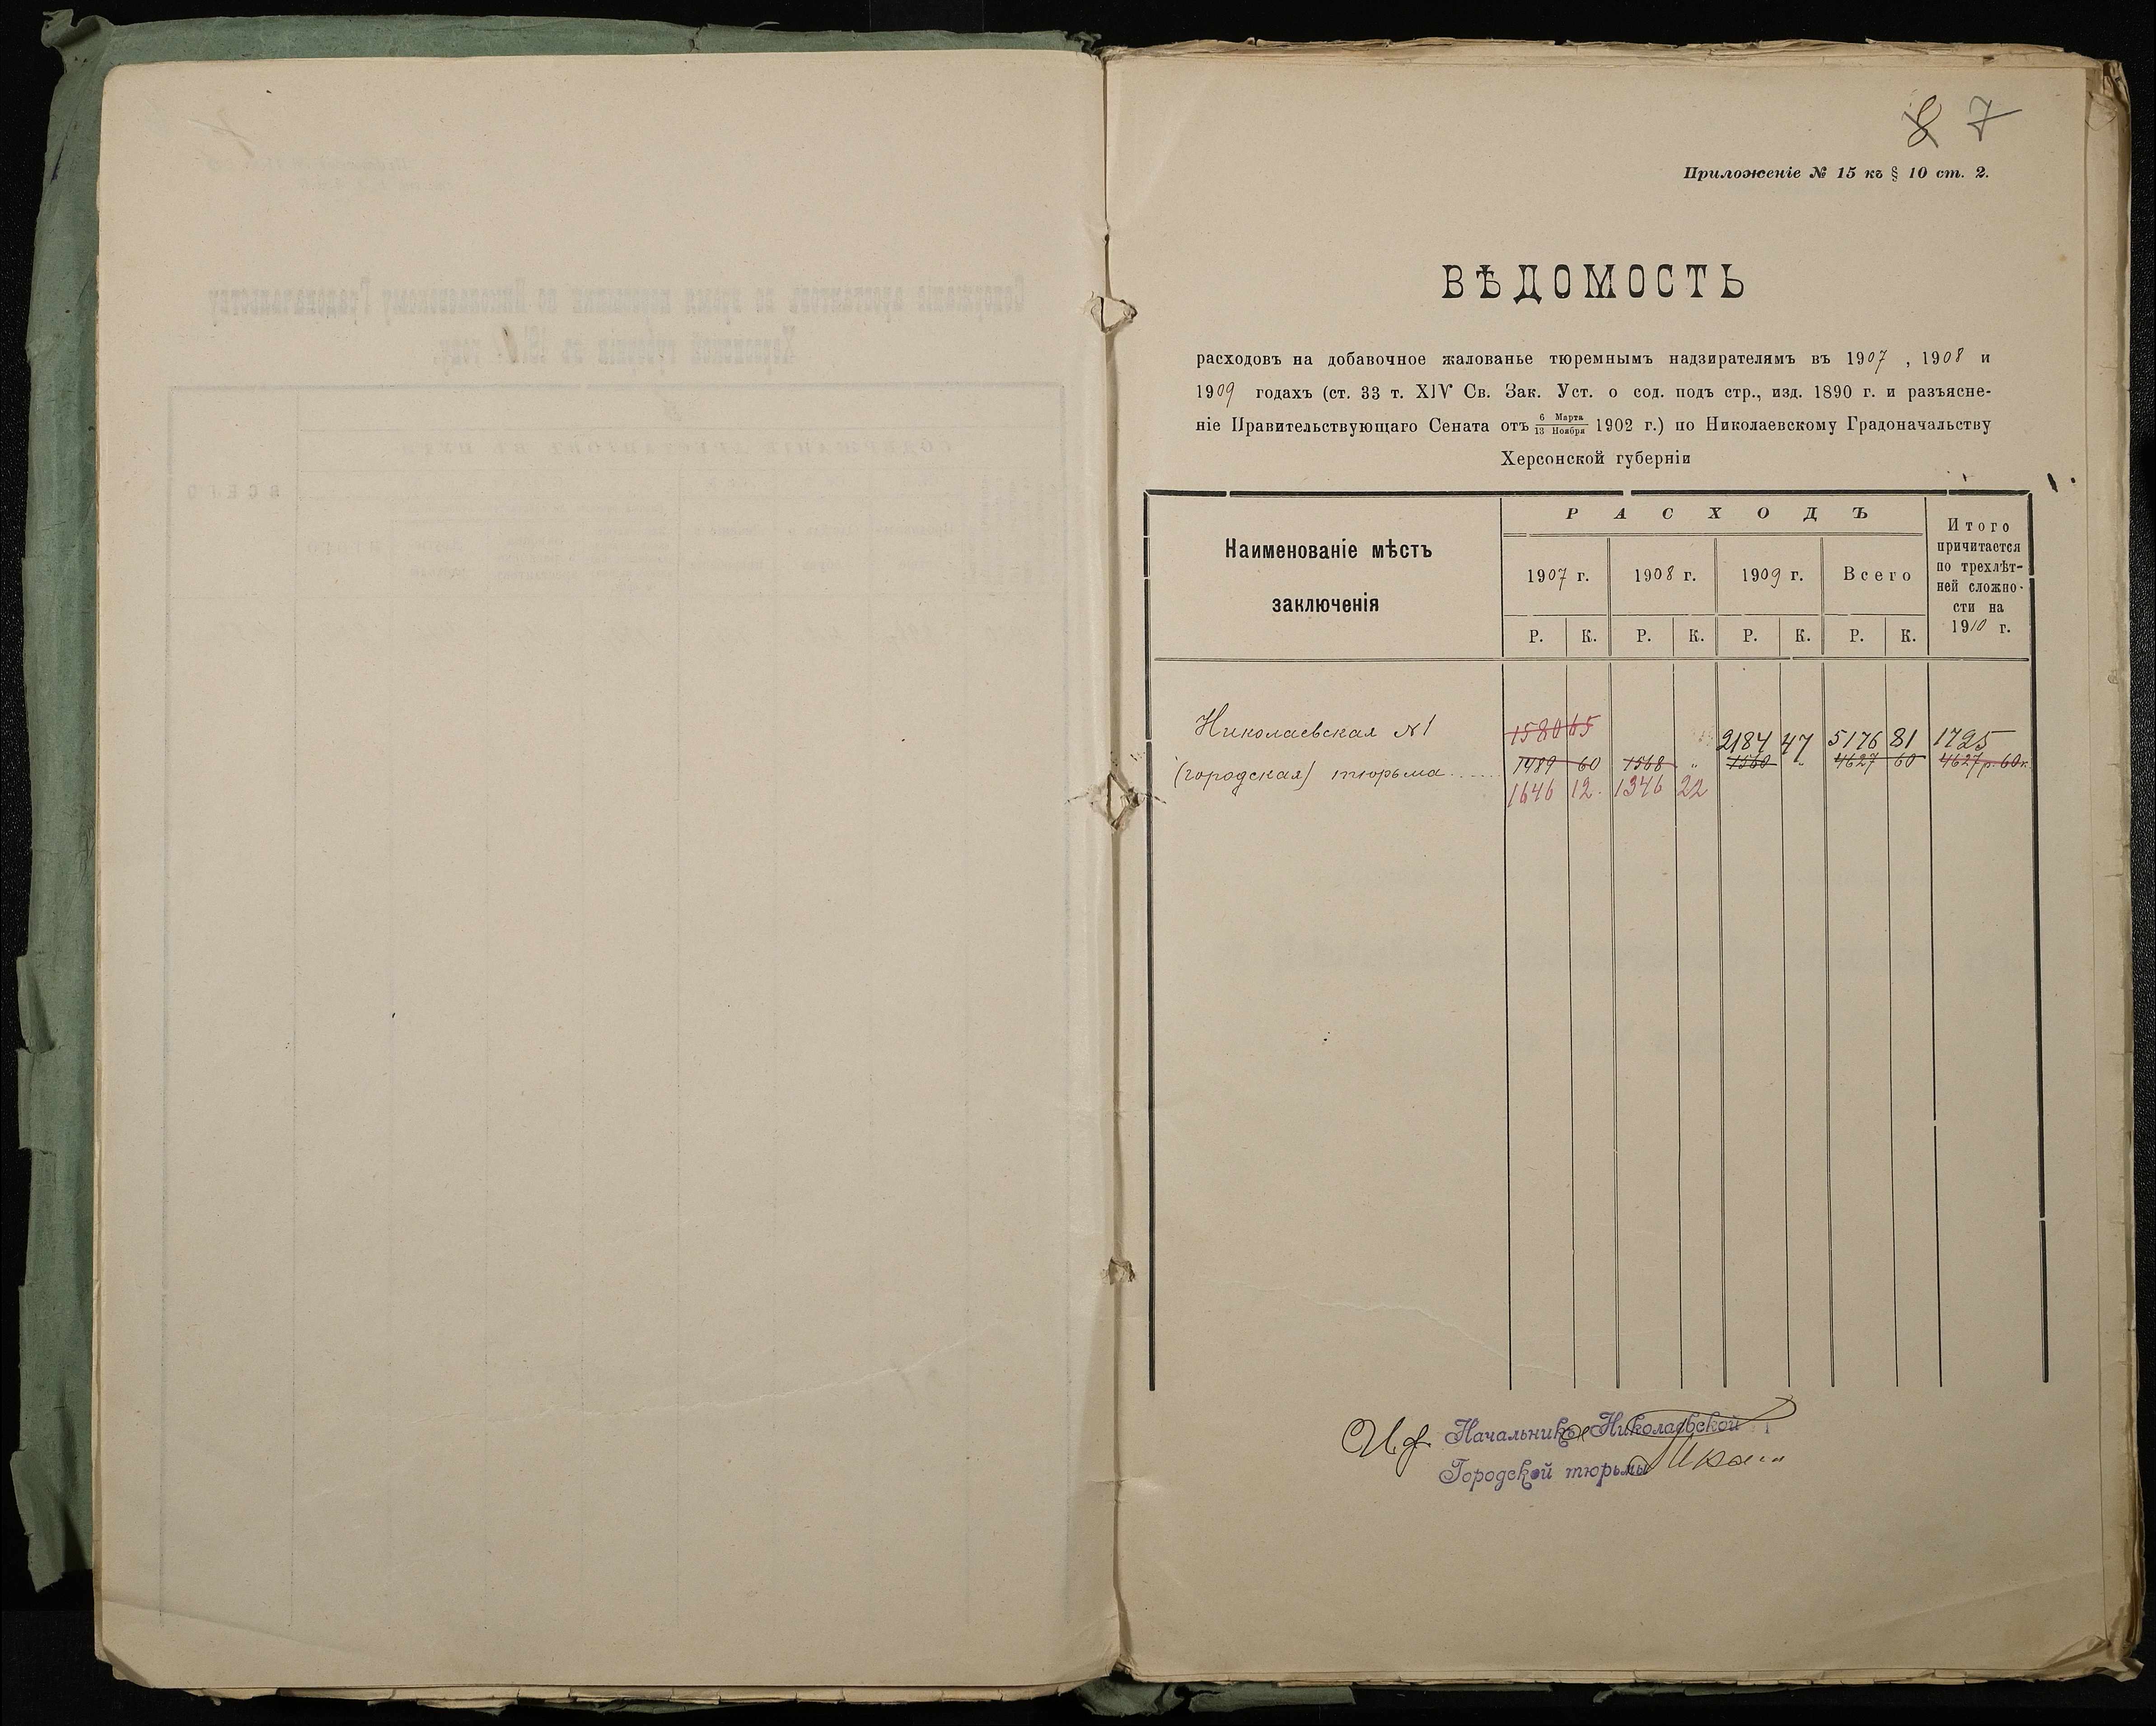 8 7
Приложеніе № 15 къ § 10 ст. 2.
ВѢДОМОСТЬ
расходовъ на добавочное жалованье тюремнымъ надзирателямъ въ 1907 , 1908 и
1909 годахъ (ст. 33 т. XIV Св. Зак. Уст. о сод. подъ стр., изд. 1890 г. и разъясне-
ніе Правительствующаго Сената отъ 6 Марта / 13 Ноября 1902 г.) по Николаевскому Градоначальству
Херсонской губерніи
Наименованіе мѣстъ
заключенія
РАСХОДЪ
1907 г. 1908 г. 1909 г. Всего
Р. К. Р. К. Р. К. Р. К.
Итого
причитается
по трехлѣт-
ней сложно-
сти на
1910 г.
Николаевская №1
(городская) тюрьма
1580 65
2184 47 5176 81 1725
1489 60 1568 " 1560 " 4627 60 4627 р. 60 к
1646 12. 1346 22
И.д. Начальникъ Николаевской
Городской тюрьмы